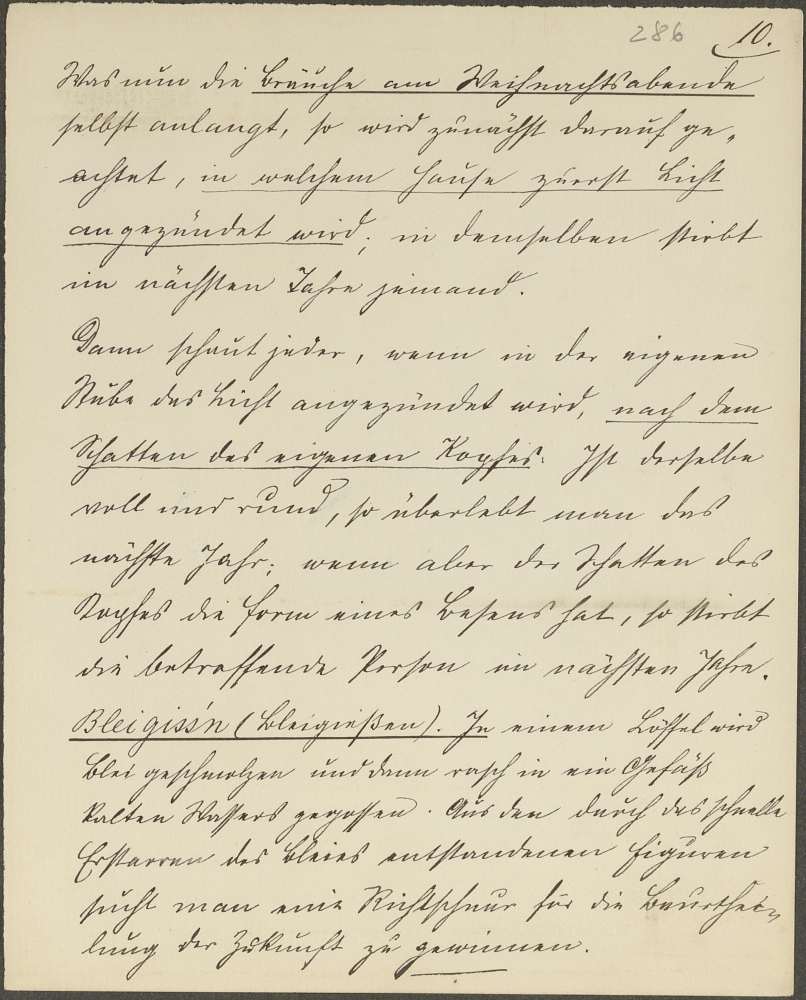 286 10.
Was nun die Bräuche am Weihnachtsabende
selbst anlangt, so wird zunächst darauf ge-
achtet, in welchem Hause zuerst Licht
angezündet wird; in demselben stirbt
im nächsten Jahre jemand.
Dann schaut jeder, wenn in der eigenen
Stube das Licht angezündet wird, nach dem
Schatten des eigenen Kopfes. Ist derselbe
voll und rund, so überlebt man das
nächste Jahr; wenn aber der Schatten des
Kopfes die Form eines Besens hat, so stirbt
die betreffende Person im nächsten Jahre.
Bleigiss'n (Bleigießen). In einem Löffel wird
Blei geschmolzen und dann rasch in ein Gefäß
kalten Wassers gegossen. Aus den durch das schnelle
Erstarren des Bleies entstandenen Figuren
sucht man eine Richtschnur für die Beurthei-
lung der Zukunft zu gewinnen.